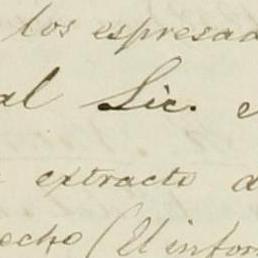 los espresad
al Lic.
extracto d
echo (El infor